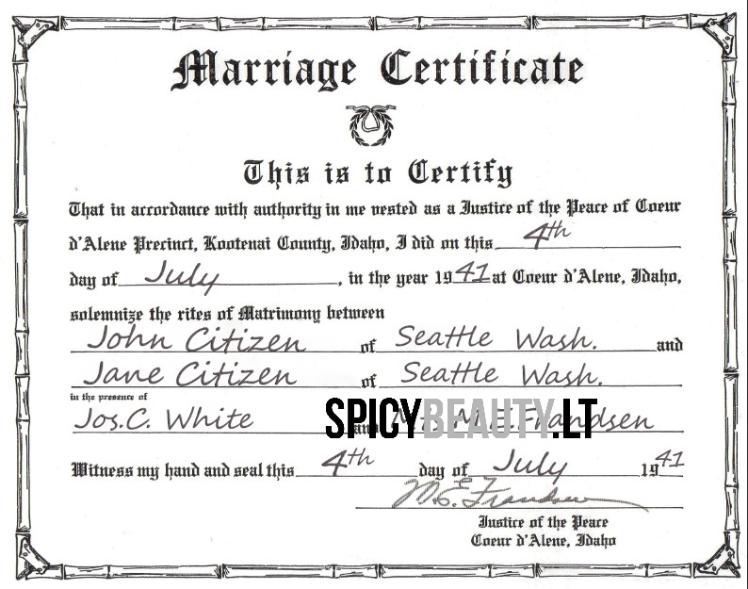 Marriage Certificate
This is to Certify
That in accordance with authority in me vested as a Justice of the Peace of Coeur
d'Alene Precinct, Kootenai County, Idaho, I did on this 4th
day of July, in the year 1941 at Coeur d'Alene, Idaho,
solemnize the rites of Matrimony between
John Citizen of Seattle Wash. and
Jane Citizen of Seattle Wash.
in the presence of
Jos.C. White and M.E.Frandsen
SPICYBEAUTY.LT
Witness my hand and seal this 4th day of July 1941
M.E. Frandsen
Justice of the Peace
Coeur d'Alene, Idaho